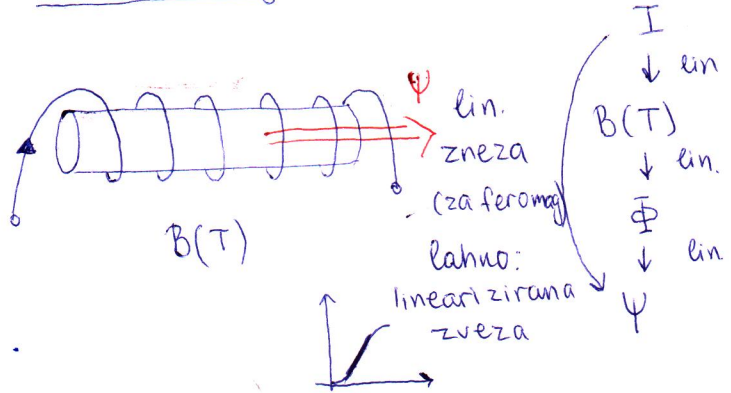 Ψ
lin.
zneza
(za feromag)
lahko:
linearizirana
zveza
B(T)
I
↓ lin
B(T)
↓ lin.
Φ
↓ lin
Ψ